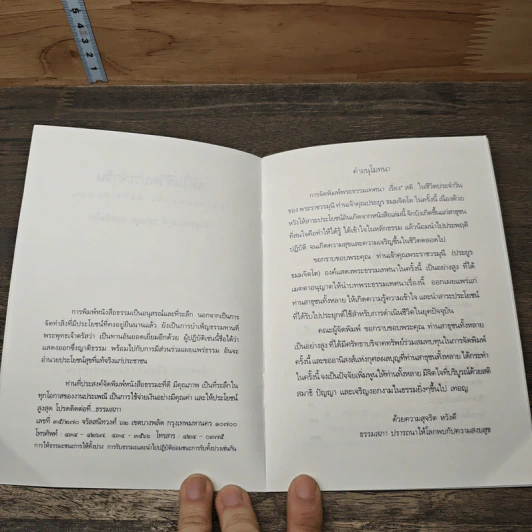 การพิมพ์หนังสือธรรมเป็นอนุสรณ์และที่ระลึก นอกจากเป็นการ
จัดทำสิ่งที่มีประโยชน์ที่คงอยู่ยืนนานแล้ว ยังเป็นการบำเพ็ญธรรมทานที่
พระพุทธเจ้าตรัสว่า เป็นทานอันยอดเยี่ยมอีกด้วย ผู้ปฏิบัติเช่นนี้ชื่อได้ว่า
แสดงออกซึ่งญาติธรรม พร้อมไปกับการมีส่วนร่วมเผยแพร่ธรรม อันจะ
อำนวยประโยชน์สุขที่แท้จริงแก่ประชาชน
ท่านที่ประสงค์จัดพิมพ์หนังสือธรรมะที่ดี มีคุณภาพ เป็นที่ระลึกใน
ทุกโอกาสของงานประเพณี เป็นการใช้จ่ายเงินอย่างมีคุณค่า และให้ประโยชน์
สูงสุด โปรดติดต่อที่..ธรรมสภา
เลขที่ ๓๕/๒๗๐ จรัสสนิทวงศ์ ๖๒ เขตบางพลัด กรุงเทพมหานคร ๑๐๗๐๐
โทรศัพท์ ๔๓๔ - ๔๒๖๗, ๔๓๔ - ๓๕๖๖ โทรสาร : ๔๒๔ - ๐๓๗๕
การให้ธรรมะชนะการให้ทั้งปวง การรับธรรมะและนำไปปฏิบัติย่อมชนะการรับทั้งปวงเช่นกัน
คำอนุโมทนา
การจัดพิมพ์พระธรรมเทศนา เรื่อง" สติ...ในชีวิตประจำวัน
ของ พระราชวรมุนี ท่านเจ้าคุณประยูร ธมมจิตโต ในครั้งนี้ เนื่องด้วย
หวังให้สาระประโยชน์อันเกิดจากหนังสือเล่มนี้ จักบังเกิดขึ้นแก่สาธุชน
ที่สนใจศึกษาให้ได้รู้ ได้เข้าใจในหลักธรรม แล้วน้อมนำไปประพฤติ
ปฏิบัติ จนเกิดความสุขและความเจริญขึ้นในชีวิตตลอดไป
ขอกราบขอบพระคุณ ท่านเจ้าคุณพระราชวรมุนี (ประยูร
ธมมจิตโต) องค์แสดงพระธรรมเทศนาในครั้งนี้ เป็นอย่างสูง ที่ได้
เมตตาอนุญาตให้นำบทพระธรรมเทศนาเรื่องนี้ ออกเผยแพร่แก่
ท่านสาธุชนทั้งหลาย ให้เกิดความรู้ความเข้าใจ และนำสาระประโยชน์
ที่ได้รับไปประยุกต์ใช้สำหรับการดำเนินชีวิตในยุคปัจจุบัน
คณะผู้จัดพิมพ์ ขอกราบขอบพระคุณ ท่านสาธุชนทั้งหลาย
เป็นอย่างสูง ที่ได้มีศรัทธาบริจาคทรัพย์ร่วมสมทบทุนในการจัดพิมพ์
ครั้งนี้ และขออานิสงส์แห่งกุศลผลบุญที่ท่านสาธุชนทั้งหลาย ได้กระทำ
ในครั้งนี้ จงเป็นปัจจัยเพิ่มพูนให้ท่านทั้งหลาย มีจิตใจที่บริบูรณ์ด้วยสติ
สมาธิ ปัญญา และเจริญงอกงามในธรรมยิ่งๆขึ้นไป เทอญ
ด้วยความสุจริต หวังดี
ธรรมสภา ปรารถนาให้โลกพบกับความสงบสุข
5 4 3 2 1